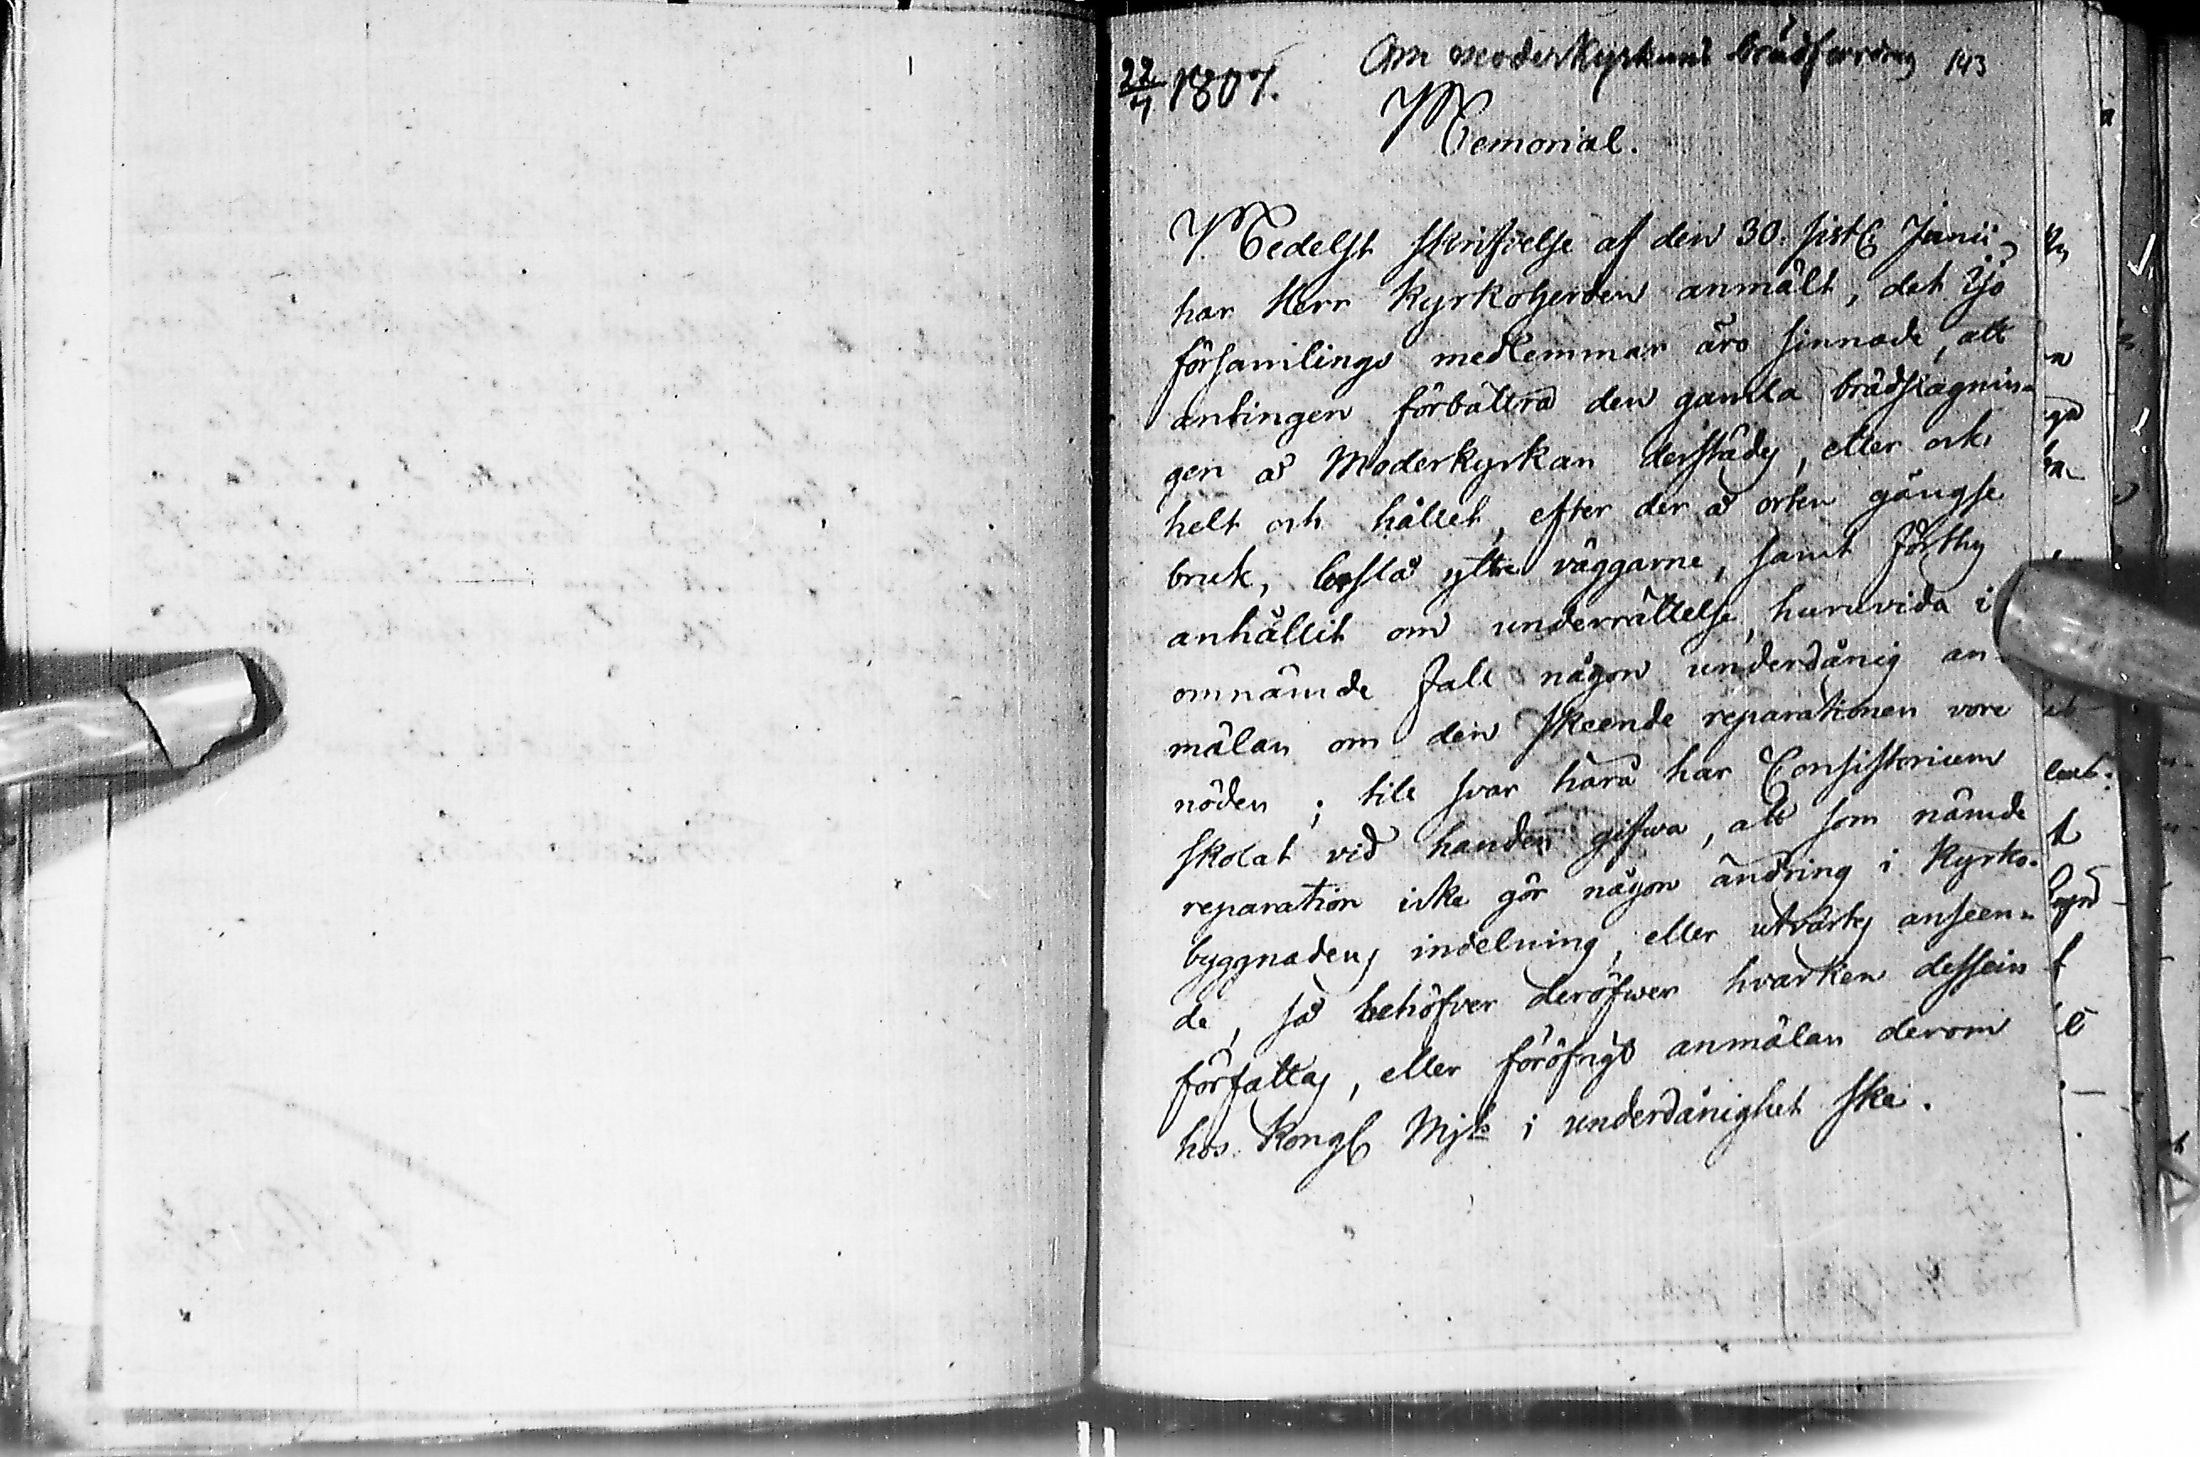 22/7 1807. Om moderkyrkans brädfordring 143
Memorial.
Medelst skrifvelse af den 30. sistl. Junii
har Herr Kyrkoherden anmält, det Ijo
församlings medlemmar äro sinnade, att
antingen förbättra den gamla brädslagnin-
gen å Moderkyrkan derstädes, eller ock
helt och hållet, efter der å orten gängse
bruk, beslå yttre väggarne, samt förthy
anhållit om underrättelse, huruvida i
omnämde fall någon underdånig an-
mälan om den skeende reparationen vore
nöden; till svar härå har Consistorium
skolat vid handen gifwa, att som nämde
reparation icke gör någon ändring i Kyrko-
byggnadens indelning, eller utvärtes anseen-
de, så behöfver deröfwer hvarken dessein
författas, eller föröfrigt anmälan derom
hos Kongl Mjt i underdånighet ske.